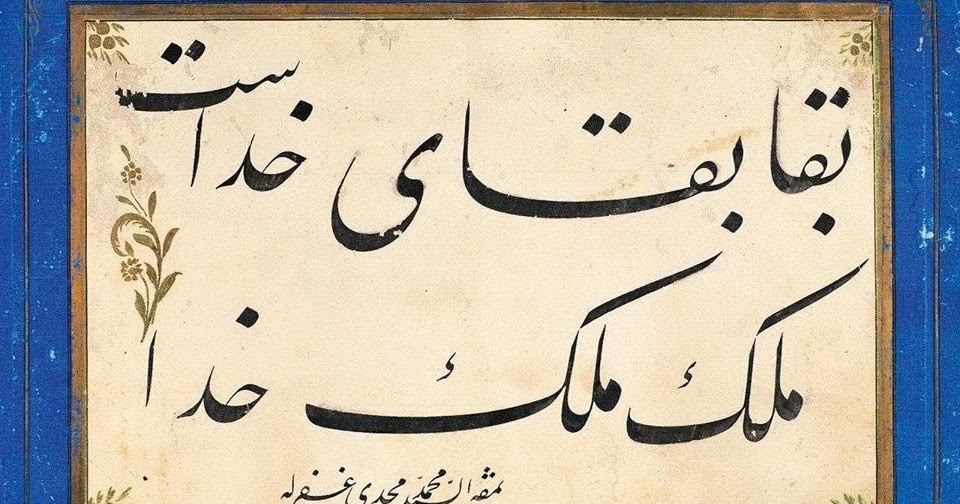 بقا بقای خداست
ملك ملك خدا
نمقه السید محمد مجدی غفرله